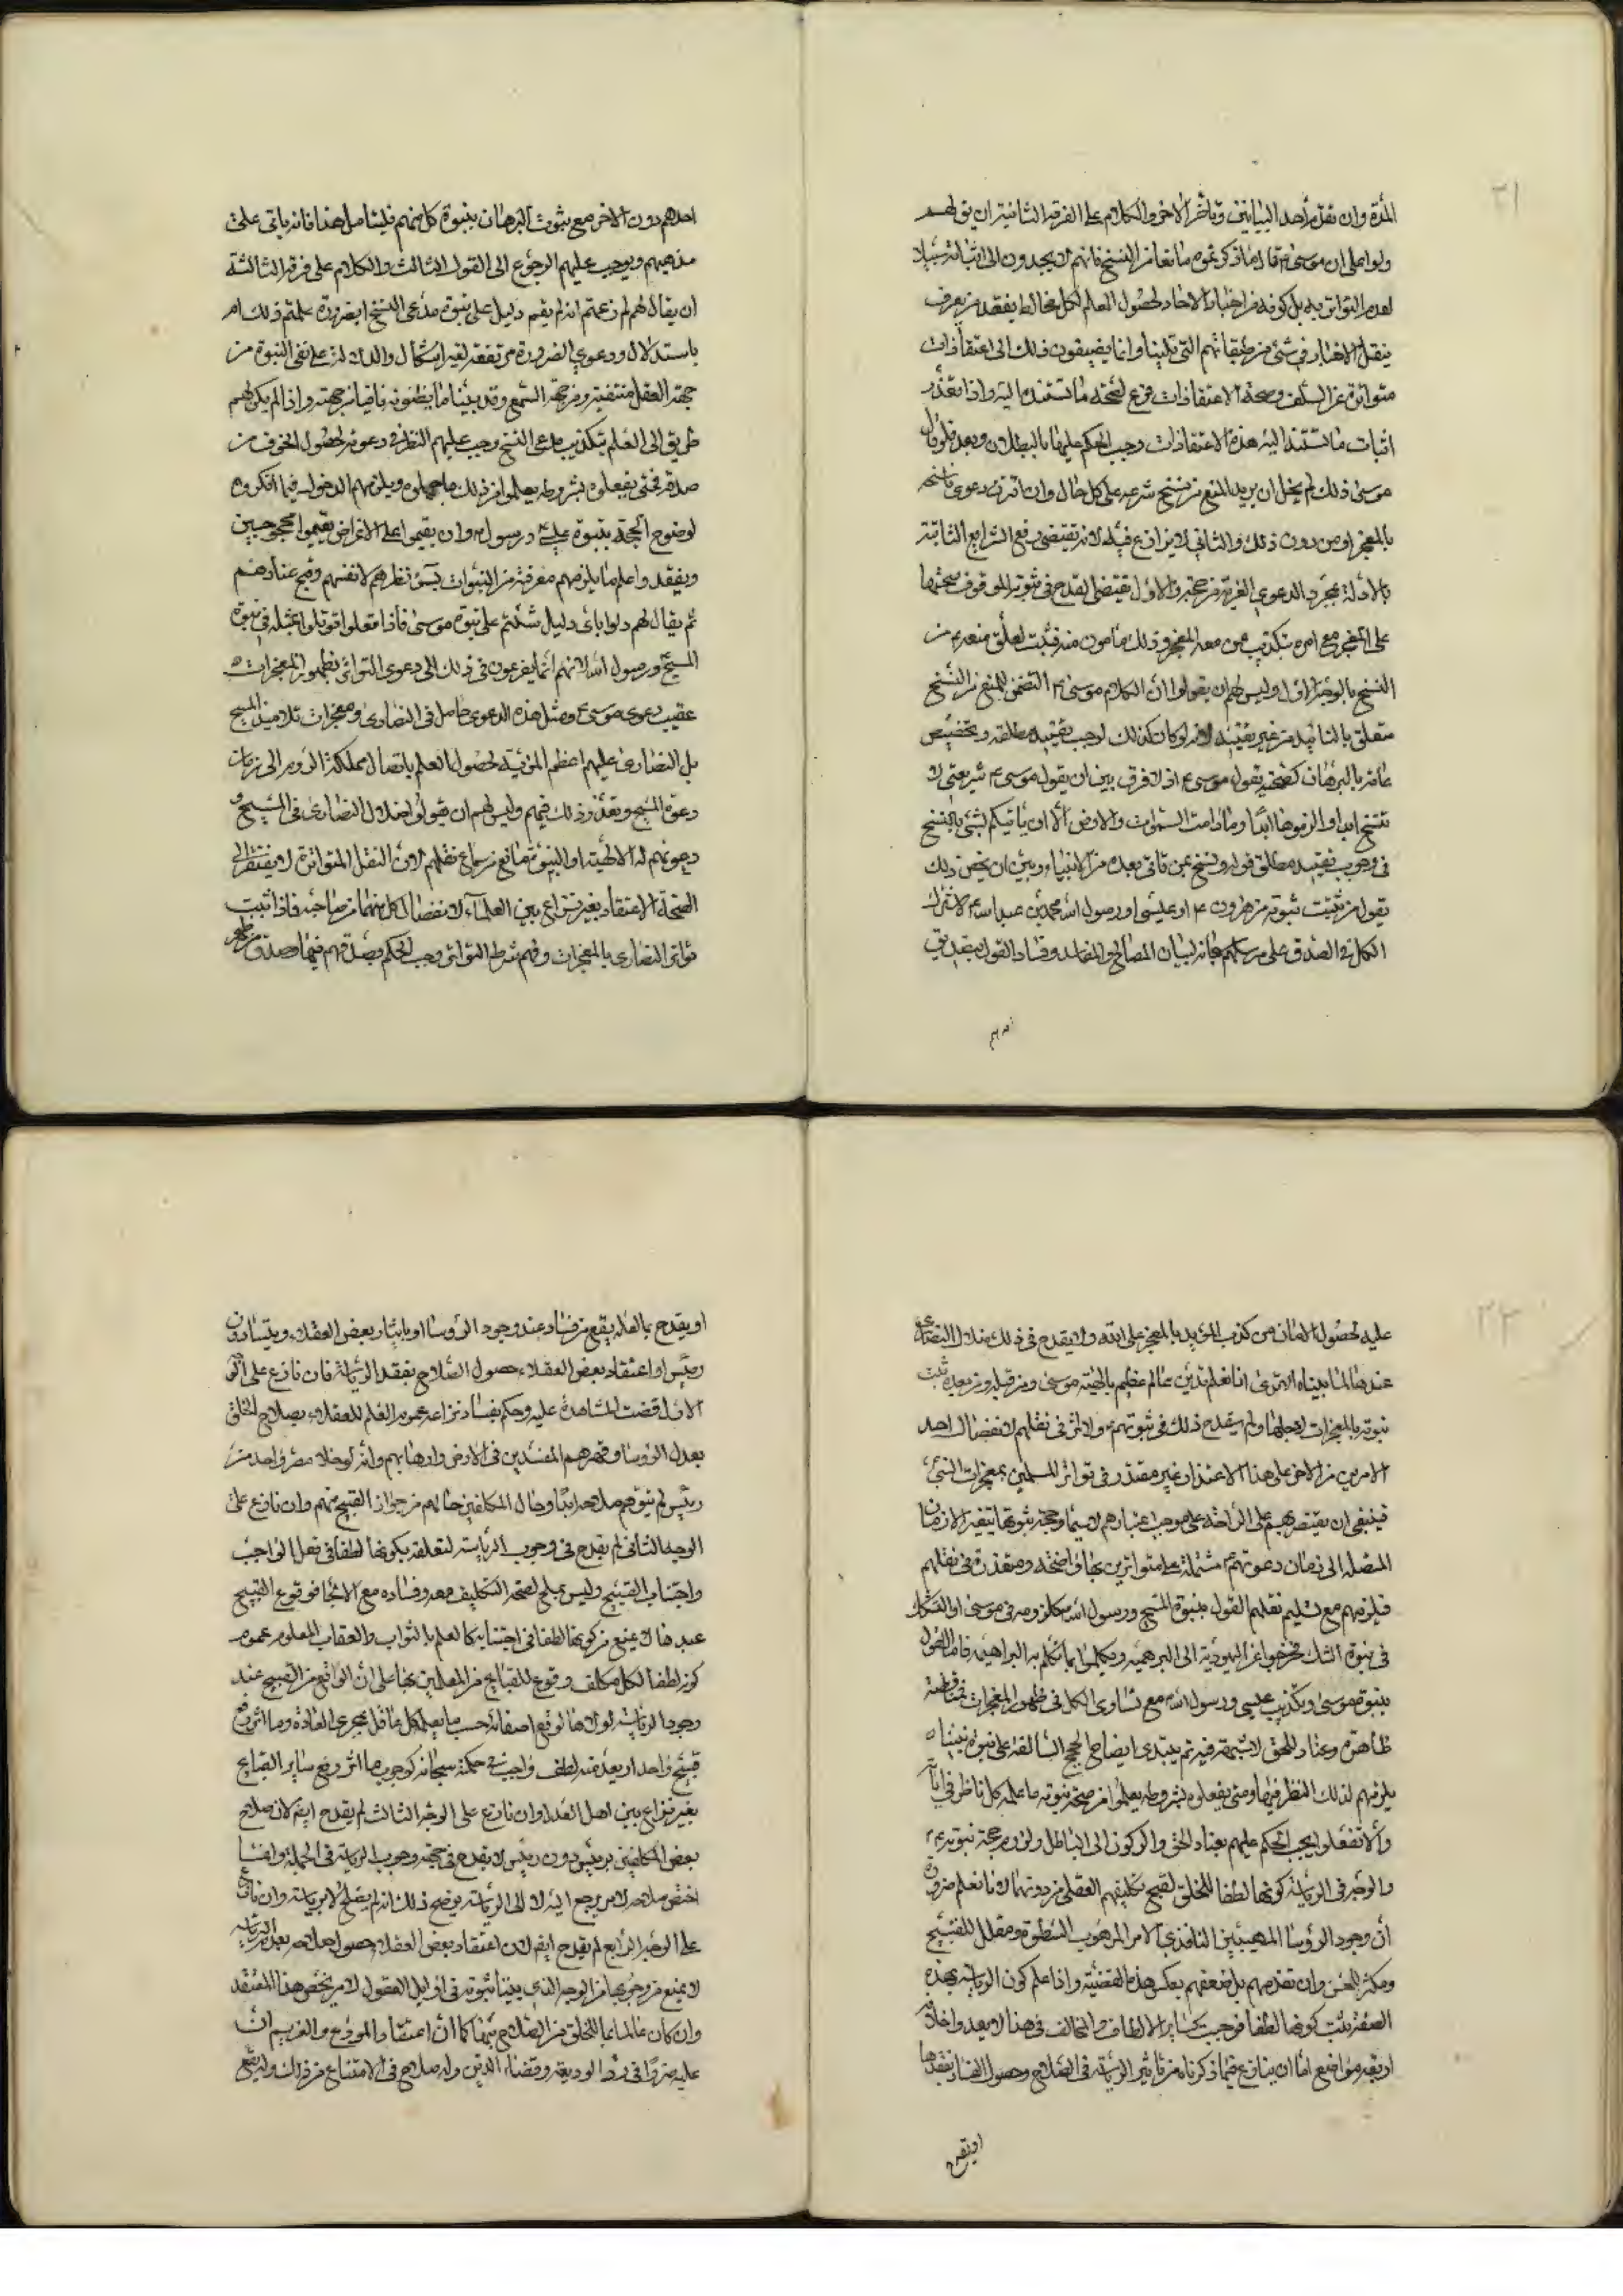 ٢١
المدة وان تقدم أحد البيانين وتأخر الاخر والكلام على الفرقة الثانية ان يق لهم
دلوا على ان موسى ۴ قال ما ذكرتموه مانعا من النسخ فانهم لا يجدون الى اثباته سبيلا
لعدم التواتر به بل كونه من اخبار الاحاد لحصول العلم لكل مخالط بفقد من يعرف
بنقل الاخبار في شئ من طبقاتهم التي تلينا وانما يضيفون ذلك الى اعتقادات
متواترة عن السلف وصحة الاعتقادات فرع لصحة ما تستند اليه واذا تعذر
اثبات ما تستند اليه هذه الاعتقادات وجب الحكم عليها بالبطلان وبعد فلو قال
موسى ذلك لم يخل ان يريد المنع من نسخ شرعه على كل حال وان اقترن دعوى ناسخه
بالمعجز او من دون ذلك والثاني لا نزاع فيه لانه تقتضى رفع الشرايع الثابتة
بالادلة بمجرد الدعوى العرية من حجة والاول تقتضى القدح في نبوته الموقوف صحتها
على المعجز مع امره بتكذيب من معه المعجز وذلك مأمون منه فثبت تعلق منعه ۴ من
النسخ بالوجه الاول وليس لهم ان يقولوا ان الكلام موسى ۴ التضمن للمنع من النسخ
متعلق بالتأبيد من غير تقييد لانه لو كان كذلك لوجب تقييد مطلقه وتخصيص
عامه بالبرهان كصحة يقول موسى ۴ اذ لا فرق بين ان يقول موسى ۴ شريعتى لا
تنسخ ابدا والزموها ابدا وما دامت السموات والارض الا ان يأتيكم نبى بالنسخ
في وجوب تقييد مطلق قوله ونسخ من تاتى بعده من الانبياء وبين ان يخص ذلك
بقول من ثبت نبوته من هرون ۴ او عيسى او رسول الله محمد بن عبد الله ۴ لاشتراك
الكل في الصدق على مرسلهم سبحانه لبيان المصالح والمفاسد وفساد القول بتصديق
احدهم دون الاخر مع ثبوت البرهان بنبوة كل منهم فليتأمل هذا فانه ياتى على
مذهبهم ويوجب عليهم الرجوع الى القول الثالث والكلام على فرقة الثالثة
ان يقال لهم لم زعمتم انه لم يقم دليل على نبوة مدعى النسخ ابضرورة علمتم ذلك ام
باستدلال ودعوى الضرورة مرتفعة لغير اشكال والدلالة على نفى النبوة من
جهة العقل منتفية ومن جهة السمع وقد بينا ما يظنونه نافيا من جهته واذا لم يكن لهم
طريق الى العلم بتكذيب مدعى النسخ وجب عليهم النظر في دعوته لحصول الخوف من
صدقه فمتى يفعلوه بشروطه يعلموا من ذلك ما جهلوه ويلزمهم الدخول فيما انكروه
لوضوح الحجة بنبوة عيسى ورسول ۴ وان يقيموا على الاغراض يقيموا محجوجين
وبفقد واعلم ما يلزمهم معرفته من النبوات بسوء نظرهم لانفسهم وقبح عنادهم
ثم يقال لهم دلوا باى دليل شئتم على نبوة موسى فاذا فعلوا قوبلوا بمثله في نبوة
المسيح ورسول الله لانهم انما يفزعون في ذلك الى دعوى التواتر بظهور المعجزات
عقيب دعوى موسى ۴ ومثل هذه الدعوى حاصل في النصارى ومعجزات تلاميذ المسيح
بل النصارى عليهم اعظم المزية لحصول العلم باتصال مملكة الروم الى زمان
دعوة المسيح وتعذر ذلك فيهم وليس لهم ان يقولوا ضلال النصارى في المسيح و
دعوتهم له الالهية او البنوة مانع من سماع نقلهم لان النقل المتواترة لا يفتقر الى
الصحة الاعتقاد بغير نزاع بين العلماء لانفصال كل منهما من صاحبه فاذا ثبت
تواتر النصارى بالمعجزات وفهم شرط التواتر وجب الحكم بصدقهم فيما وصدق من ظهر
٢٢
عليه لحصول الامان من كذب المؤيد بالمعجز على الله ولا يقدح في ذلك ضلال النصارى
عندها لما بيناه الا ترى انا نعلم تدين عالم عظيم بالهية موسى ومن قبله ومن بعده ثبت
نبوته بالمعجزات لاجلها ولم يقدح ذلك في نبوتهم ۴ ولا اثر في نقلهم لانفصال احد
الامرين من الاخر على هذا الاعتذار غير متعذر في تواتر المسلمين بمعجزات النبى
فينبغى ان يقتصر بهم على الراحة على موجب اعتبارهم لا سيما وحجة ثبوتها يتغير الازمان
المتصلة الى زمان دعوتهم مشتملة على متواترين بها واضحة ومتعذرة في نقلهم
فيلزمهم مع تسليم نقلهم القول بنبوة المسيح ورسول الله كلزومه في موسى او الشك
في نبوة الشك فخرجوا عن اليهودية الى البرهمية ويكلموا بما تكلم به البراهمة فاما القول
بنبوة موسى وتكذيب عيسى ورسول الله مع تساوى الكل في ظهور المعجزات فمناقضة
ظاهرة وعناد للحق لا شبهة فيه ثم يبتدى ايضاح الحجج السالفة على نبوة نبينا
يلزمهم لذلك النظر فيها ومتى يفعلوه بشروطه يعلموا من صحة نبوته ما علمه كل ناظر في آياته
والا تفعلوا يجب الحكم عليهم بعناد الحق والركون الى الباطل ولزوم حجة نبوته ۴
والوجه في الرياسة كونها لطفا للخلق لقبح تكليفهم العقلى من دونها لانا نعلم ضرورة
أن وجود الرؤسا المهيبين النافذى الامر المرهوب السطوة ومقلل للقبيح
ومكثر للحسن وان تقدمهم بل ضعفهم بعكس هذه القضية واذا علم كون الرياسة بهذه
الصفة ثبت كونها لطفا فوجبت كساير الالطاف والمخالف في هذا لا يعدوا خلافه
اربعة مواضع اما ان ينازع فيما ذكرناه من تأثير الرياسة في الصلاح وحصول الفساد بفقدها
اويقدح
او يقدح بما لعله يقع من فساد عند وجود الرؤسا او بايثار بعض العقلاء ويتسادون
رئيس او اعتقاد بعض العقلاء حصول الصلاح بفقد الرياسة فان نازع على الوجه
الاول قضت المشاهدة عليه وحكم بفساد نزاعه عموم العلم للعقلاء بصلاح الخلق
بعدل الرؤسا وقهرهم المفسدين في الارض وارهابهم وانه لو خلا مصر واحد من
رئيس لم يتوهم صلاحه ابدا وحال المكلفين حالهم من جواز القبيح منهم وان نازع على
الوجه الثانى لم يقدح في وجوب الرياسة لتعلقه بكونها لطفا في فعل الواجب
واجتناب القبيح وليس بملجئ لصحة التكليف معه وفساده مع الالجا فوقوع القبيح
عندها لا يمنع من كونها لطفا في اجتنابه كالعلم بالثواب والعقاب المعلوم عموم
كونه لطفا لكل مكلف وقوع للقبايح من المعللين بها على ان الواقع من القبيح عند
وجود الرياسة لولاها لوقع اضعافه حسب ما يعلم كل عاقل بمجرى العادة وما اثر رفع
قبيح واحد او بعد منه لطف واجب في حكمته سبحانه كوجوب ما اثر رفع ساير القبايح
بغير نزاع بين اهل العدل وان نازع على الوجه الثالث لم يقدح ايضا لان صلاح
بعض المكلفين برئيس دون رئيس لا يقدح في صحة وجوب الرياسة في الجملة وانما
اختص صلاحه لامر يرجع اليه لا الى الرياسة يوضح ذلك انه لم يصلح الا برياسة وان نازع
على الوجه الرابع لم يقدح ايضا لان اعتقاد بعض العقلاء حصول صلاحه بعدم الرياسة
لا يمنع من وجوبها من الوجه الذى بينا ثبوته في اوايل العقول لامر يخص هذا المعتقد
وان كان عالما بما للخلق من الصلاح بها كما أن اعتقاد المودع والغريم ان
عليه ضررا في رد الوديعة وقضاء الدين وله صلاح في الامتناع من ذلك وليقع